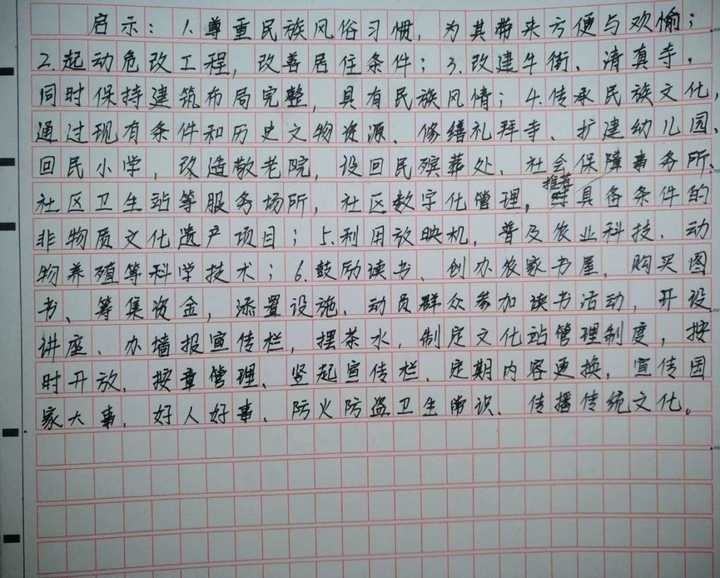 启示：1.尊重民族风俗习惯，为其带来方便与欢愉；
2.起动危改工程，改善居住条件；3.改建牛街、清真寺，
同时保持建筑布局完整，具有民族风情；4.传承民族文化，
通过现有条件和历史文物资源、修缮礼拜寺、扩建幼儿园、
回民小学，改造敬老院，设回民殡葬处、社会保障事务所、
社区卫生站等服务场所，社区数字化管理，推荐具备条件的
非物质文化遗产项目；5.利用放映机，普及农业科技、动
物养殖等科学技术；6.鼓励读书、创办农家书屋，购买图
书、筹集资金，添置设施、动员群众参加读书活动，开设
讲座、办墙报宣传栏，摆茶水，制定文化站管理制度，按
时开放，按章管理、竖起宣传栏，定期内容更换，宣传国
家大事，好人好事、防火防盗卫生常识、传播传统文化。